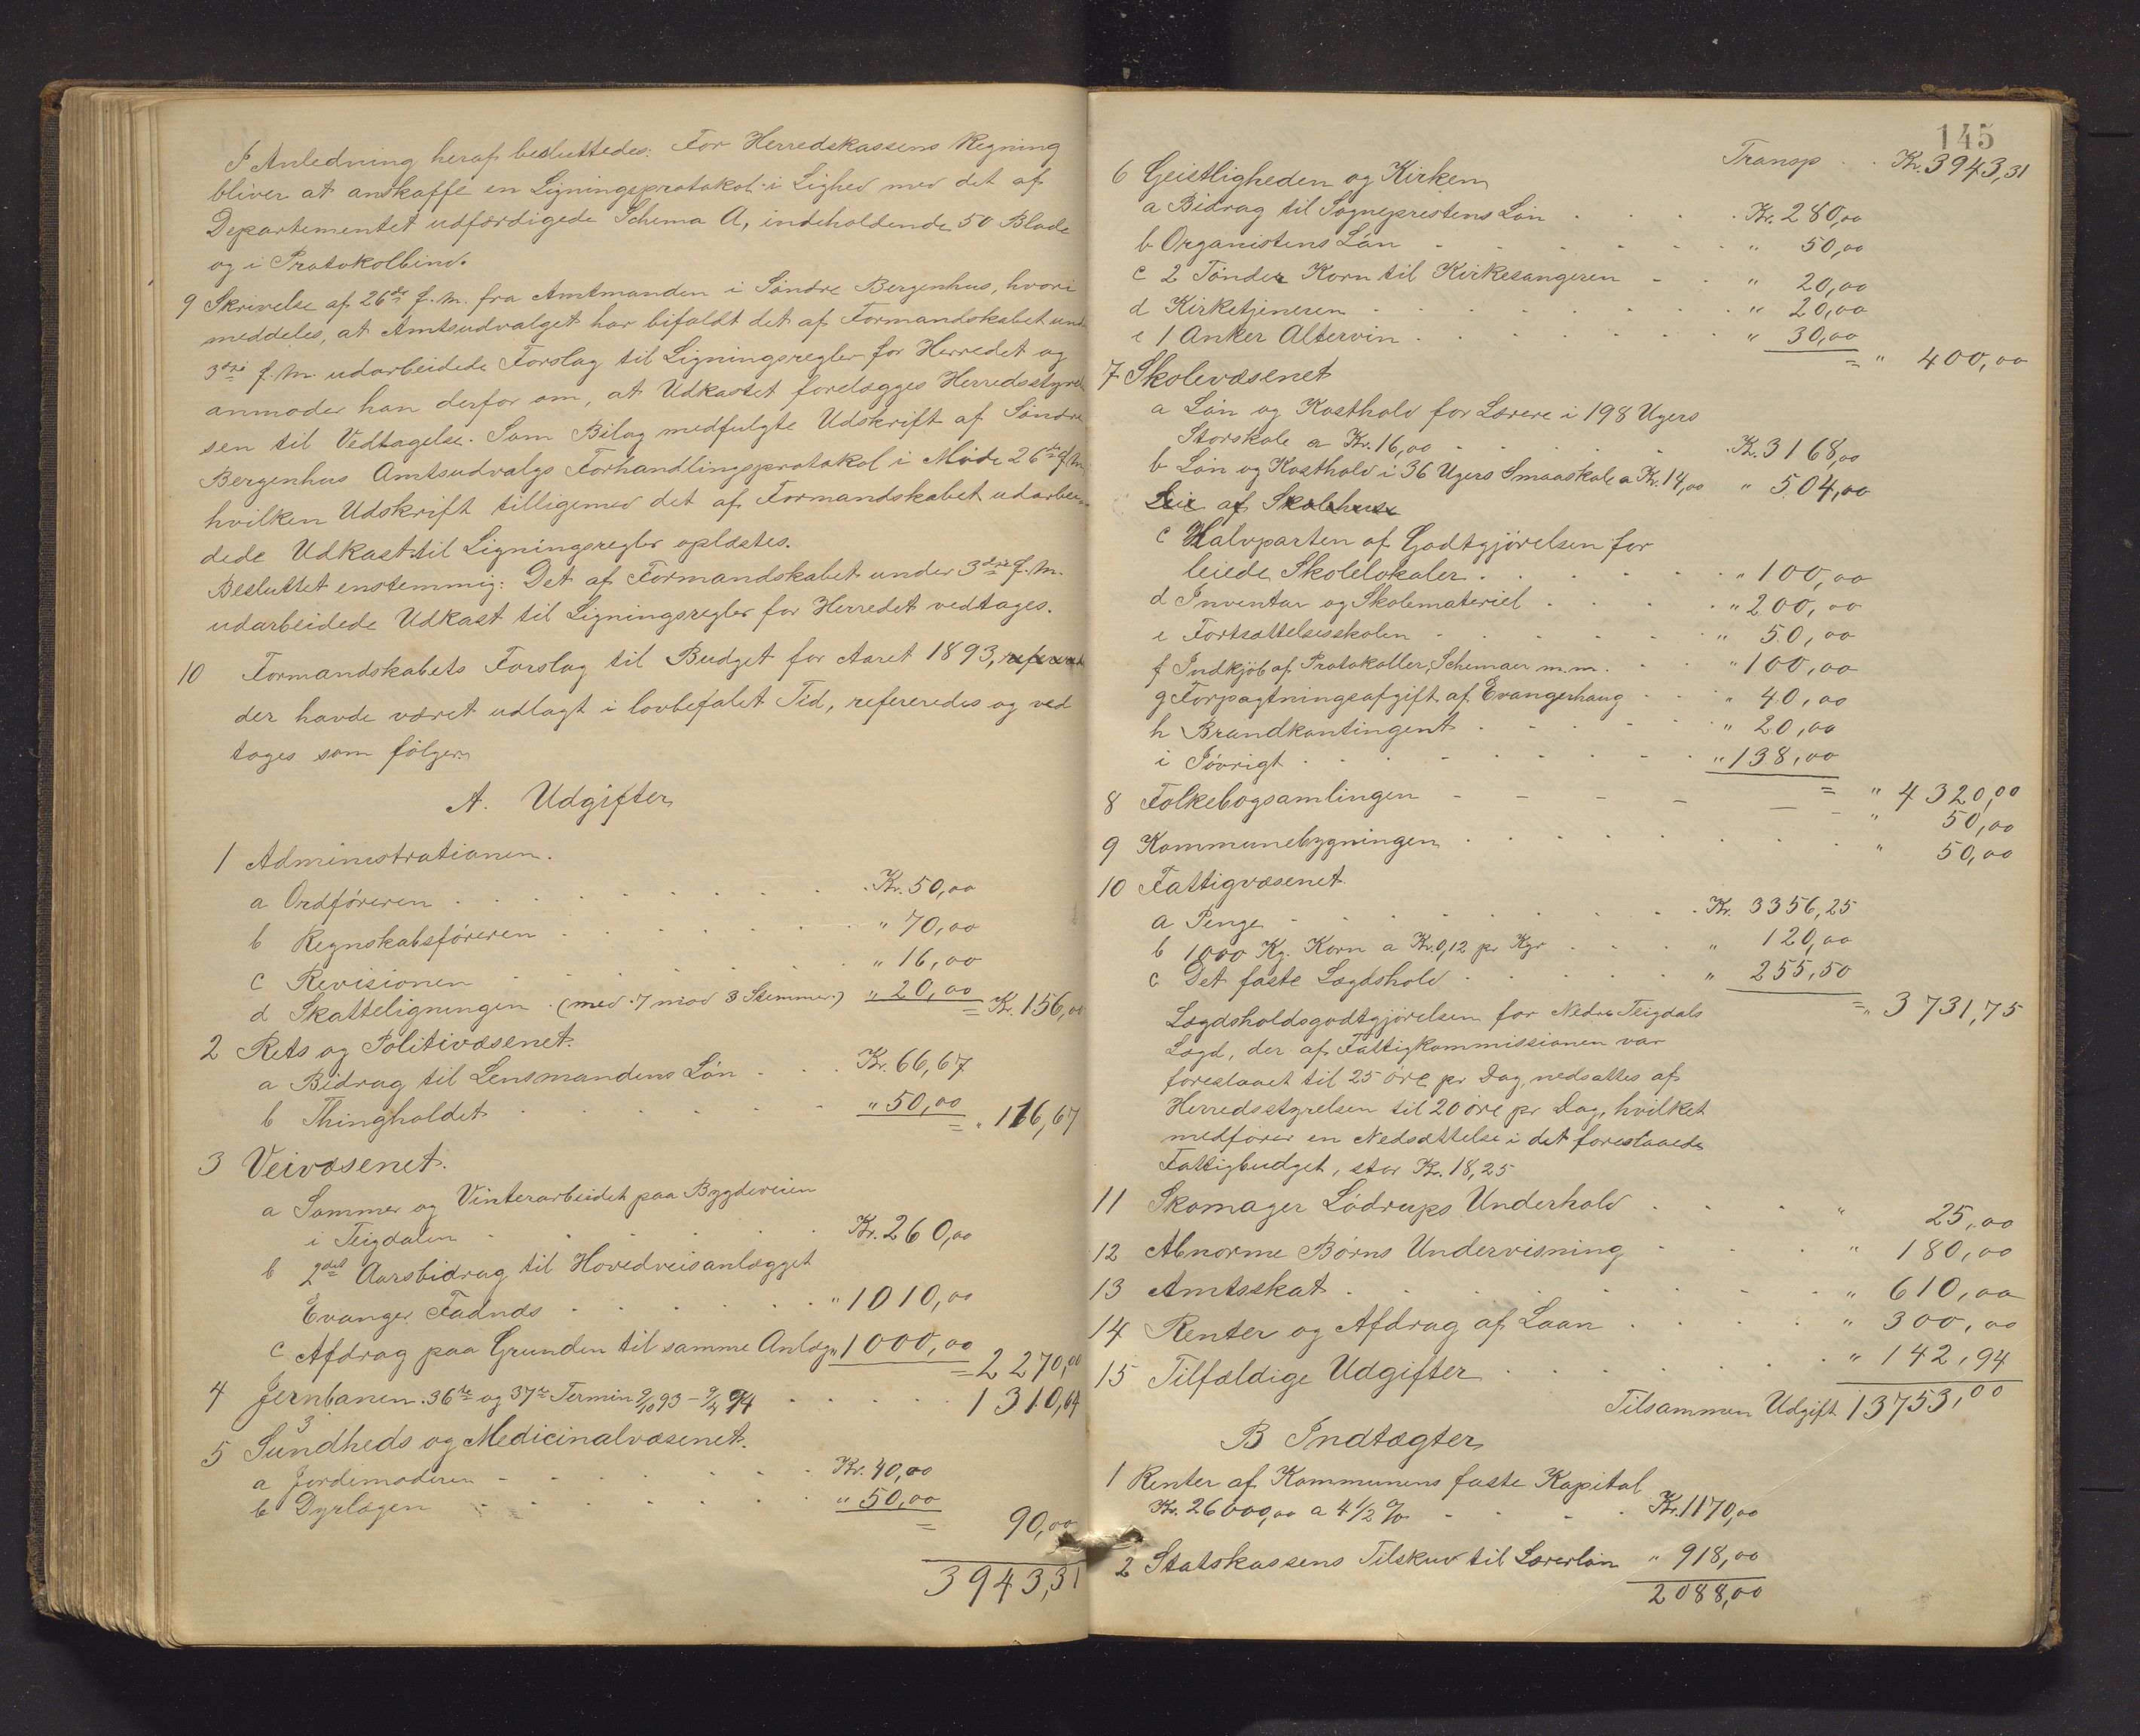 I Anledning heraf besluttedes: For Herredskassens Regning
bliver at anskaffe en Ligningsprotokol i Lighed med det af
Departementet udfærdigede Schema A, indeholdende 50 Blade
og i Protokolbind.
9 Skrivelse af 26de f. M. fra Amtmanden i Søndre Bergenhus, hvori
meddeles, at Amtsudvalget har bifaldt det af Formandskabet und
3die f. M. udarbeidede Forslag til Ligningsregler for Herredet og
anmoder han derfor om, at Udkastet forelægges Herredsstyrel
sen til Vedtagelse. Som Bilag medfulgte Udskrift af Søndre
Bergenhus Amtsudvalgs Forhandlingsprotokol i Møde 26de f. M.
hvilken Udskrift tilligemed det af Formandskabet udarbei
dede Udkast til Ligningsregler oplæstes.
Besluttet enstemmig: Det af Formandskabet under 3die f. M.
udarbeidede Udkast til Ligningsregler for Herredet vedtages.
10 Formandskabets Forslag til Budget for Aaret 1893, referert
der havde været udlagt i lovbefalet Tid, refereredes og ved
toges som følger:
A. Udgifter
1 Administrationen.
a Ordføreren . . . Kr. 50,00
b Regnskabsføreren . . . " 70,00
c Revisionen . . . " 16,00
d Skatteligningen . (med 7 mod 3 Stemmer.) " 20,00 = Kr. 156,00
2 Rets og Politivæsenet.
a Bidrag til Lensmandens Løn . . . Kr. 66,67
b Thingholdet . . . " 50,00 = " 116,67
3 Veivæsenet.
a Sommer og Vinterarbeidet paa Bygdeveien
i Teigdalen . . . Kr. 260,00
b 2det Aarsbidrag til Hovedveisanlægget
Evanger Fadnæs . . . " 1010,00
c Afdrag paa Grunden til samme Anlæg " 1000,00 = 2270,00
4 Jernbanen. 36te og 37te Termin 9/10 93 - 9/4 94 . . . 1310,64
3
5 Sundheds og Medicinalvæsenet.
a Jordemoderen . . . Kr. 40,00
b Dyrlægen . . . " 50,00
= 90,00
3943,31
145
Transp . . Kr. 3943,31
6 Geistligheden og Kirken
a Bidrag til Sogneprestens Løn . . . Kr. 280,00
b Organistens Løn . . . " 50,00
c 2 Tønder Korn til Kirkesangeren . . . " 20,00
d Kirketjeneren . . . " 20,00
e 1 Anker Altervin . . . " 30,00
= " 400,00
7 Skolevæsenet
a Løn og Kosthold for Lærere i 198 Ugers
Storskole a Kr. 16,00 . . . Kr. 3168,00
b Løn og Kosthold i 36 Ugers Smaaskole a Kr. 14,00 " 504,00
Leie af Skolehuse
c Halvparten af Godtgjørelsen for
leiede Skolelokaler . . . " 100,00
d Inventar og Skolemateriel . . . " 200,00
e Fortsættelsesskolen . . . " 50,00
f Indkjøb af Protokoller, Schemaer m.m. . . . " 100,00
g Forpagtningsafgift af Evangerhaug . . . " 40,00
h Brandkontingent . . . " 20,00
i Iøvrigt . . . " 138,00
= " 4320,00
8 Folkebogsamlingen . . . " 50,00
9 Kommunebygningen . . . " 50,00
10 Fattigvæsenet.
a Penge . . . Kr. 3356,25
b 1000 Kg. Korn a Kr. 0,12 pr Kgr . . . " 120,00
c Det faste Lægdshold . . . " 255,50
= " 3731,75
Lægdsholdsgodtgjørelsen for Nedre Teigdals
Lægd, der af Fattigkommissionen var
foreslaaet til 25 øre pr Dag, nedsattes af
Herredsstyrelsen til 20 øre pr Dag, hvilket
medfører en Nedsættelse i det foreslaaede
Fattigbudget, stor Kr. 18,25
11 Skomager Lødrups Underhold . . . " 25,00
12 Abnorme Børns Undervisning . . . " 180,00
13 Amtsskat . . . " 610,00
14 Renter og Afdrag af Laan . . . " 300,00
15 Tilfældige Udgifter . . . " 142,94
Tilsammen Udgift 13753,00
B Indtægter
1 Renter af Kommunens faste Kapital
Kr. 26000,00 a 4 1/2 % . . . Kr. 1170,00
2 Statskassens Tilskud til Lærerløn " 918,00
2088,00